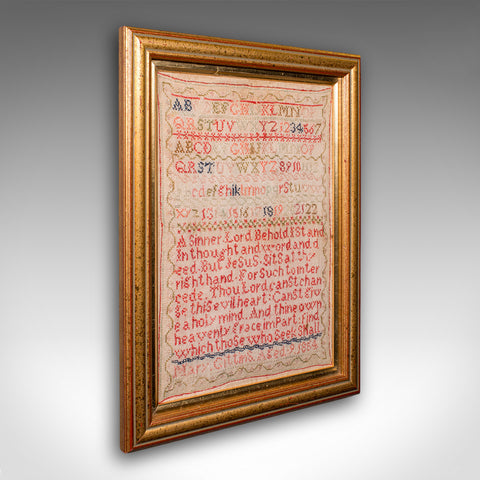 AB EFGHIJKLMN
QRSTUV XYZ1234567
ABCD GHIJKLMNOP
QRSTUVWXYZ8910
cdefghiklmnopqrstuvw
xyz 13141516171819 2122
A Sinner Lord Behold I Stand
In thought and word and d
eed. But Jesus. Sits at thy
right hand. For Such to inter
cede. Thou Lord canst chan
ge this evil heart: Canst giv
e a holy mind. And thine own
heavenly grace impart: find
which those who Seek Shall
Mary Gittins Aged 9 1884